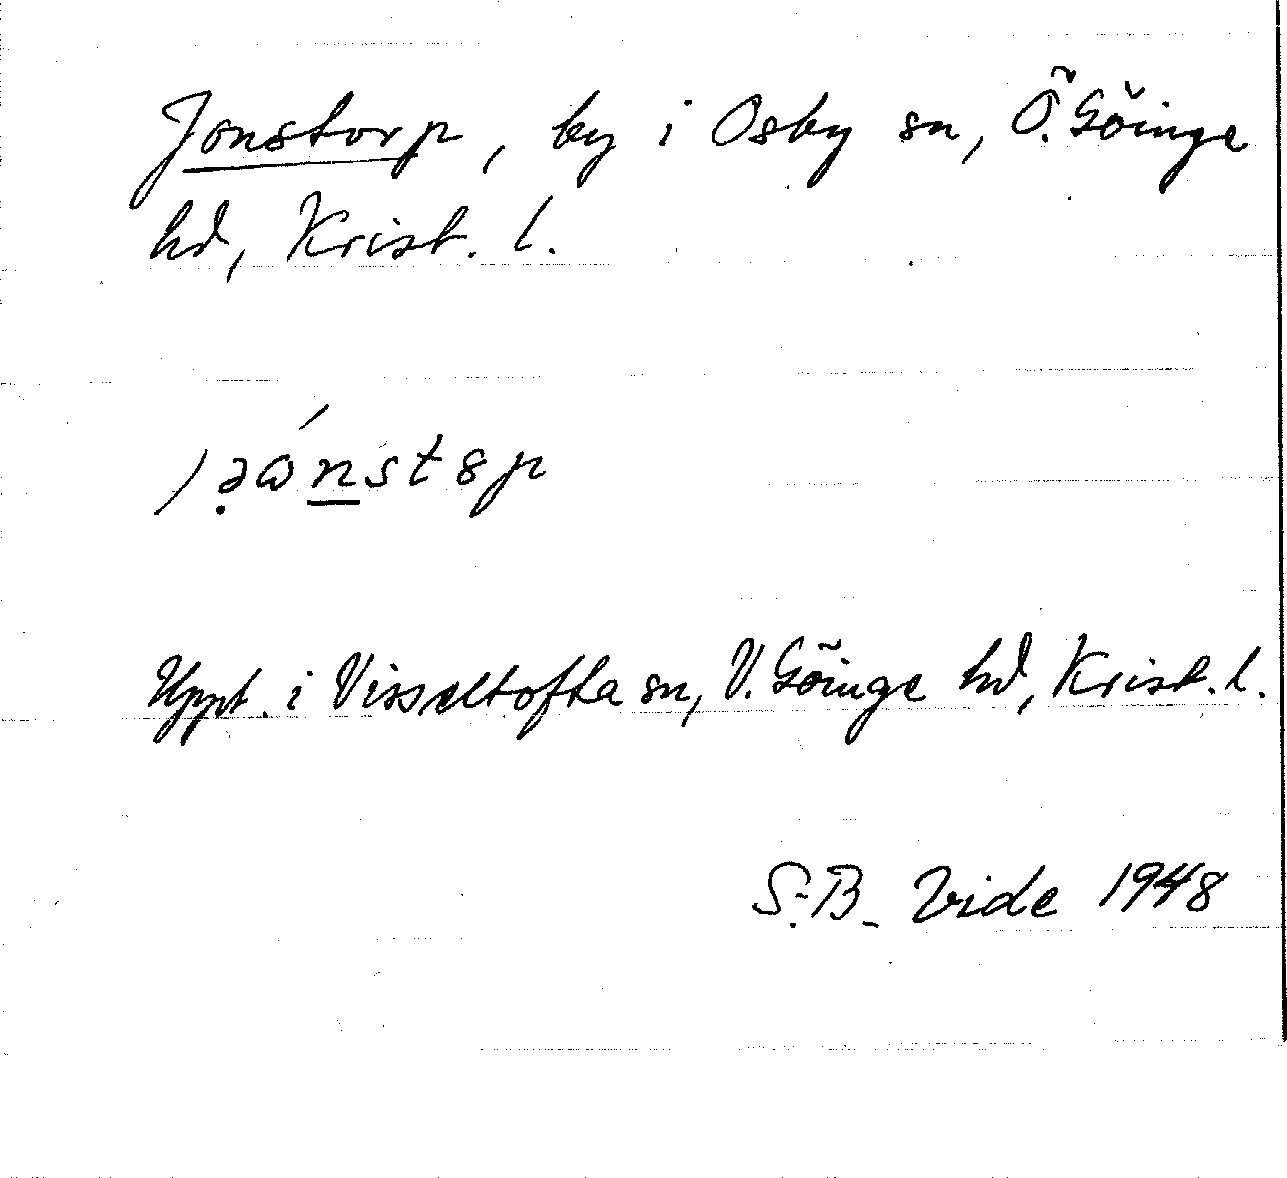 Jonstorp, by i Osby sn, Ö. Göinge
hd, Krist. l.
Uppt. i Visseltofta sn, V. Göinge hd, Krist. l.
S.-B. Vide 1948